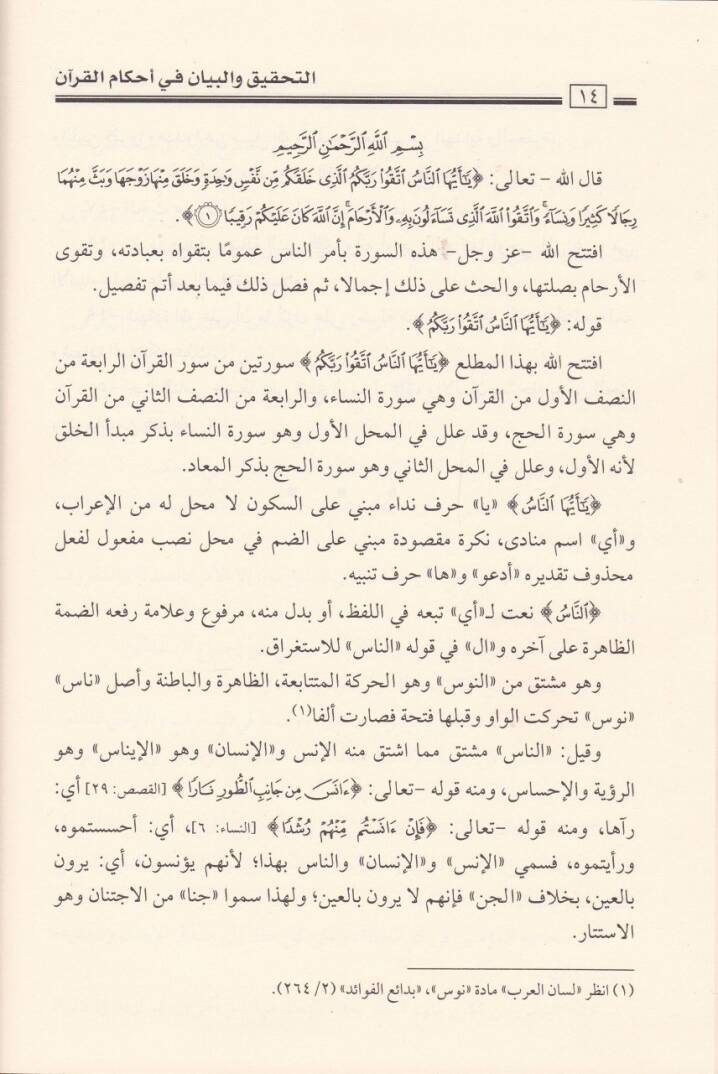 التحقيق والبيان في أحكام القرآن
١٤
بِسْمِ اللَّهِ الرَّحْمَٰنِ الرَّحِيمِ
قال الله – تعالى: ﴿يَٰٓأَيُّهَا ٱلنَّاسُ ٱتَّقُوا۟ رَبَّكُمُ ٱلَّذِى خَلَقَكُم مِّن نَّفْسٍ وَٰحِدَةٍ وَخَلَقَ مِنْهَا زَوْجَهَا وَبَثَّ مِنْهُمَا
رِجَالًا كَثِيرًا وَنِسَآءً ۚ وَٱتَّقُوا۟ ٱللَّهَ ٱلَّذِى تَسَآءَلُونَ بِهِۦ وَٱلْأَرْحَامَ ۚ إِنَّ ٱللَّهَ كَانَ عَلَيْكُمْ رَقِيبًا ۝١﴾.
افتتح الله –عز وجل– هذه السورة بأمر الناس عمومًا بتقواه بعبادته، وتقوى
الأرحام بصلتها، والحث على ذلك إجمالا، ثم فصل ذلك فيما بعد أتم تفصيل.
قوله: ﴿يَٰٓأَيُّهَا ٱلنَّاسُ ٱتَّقُوا۟ رَبَّكُمُ﴾.
افتتح الله بهذا المطلع ﴿يَٰٓأَيُّهَا ٱلنَّاسُ ٱتَّقُوا۟ رَبَّكُمُ﴾ سورتين من سور القرآن الرابعة من
النصف الأول من القرآن وهي سورة النساء، والرابعة من النصف الثاني من القرآن
وهي سورة الحج، وقد علل في المحل الأول وهو سورة النساء بذكر مبدأ الخلق
لأنه الأول، وعلل في المحل الثاني وهو سورة الحج بذكر المعاد.
﴿يَٰٓأَيُّهَا ٱلنَّاسُ﴾ «يا» حرف نداء مبني على السكون لا محل له من الإعراب،
و«أي» اسم منادى، نكرة مقصودة مبني على الضم في محل نصب مفعول لفعل
محذوف تقديره «أدعو» و«ها» حرف تنبيه.
﴿ٱلنَّاسُ﴾ نعت لـ«أي» تبعه في اللفظ، أو بدل منه، مرفوع وعلامة رفعه الضمة
الظاهرة على آخره و«ال» في قوله «الناس» للاستغراق.
وهو مشتق من «النوس» وهو الحركة المتتابعة، الظاهرة والباطنة وأصل «ناس»
«نوس» تحركت الواو وقبلها فتحة فصارت ألفا(١).
وقيل: «الناس» مشتق مما اشتق منه الإنس و«الإنسان» وهو «الإيناس» وهو
الرؤية والإحساس، ومنه قوله –تعالى: ﴿ءَانَسَ مِن جَانِبِ ٱلطُّورِ نَارًا﴾ [القصص: ٢٩] أي:
رآها، ومنه قوله –تعالى: ﴿فَإِنْ ءَانَسْتُم مِّنْهُمْ رُشْدًا﴾ [النساء: ٦]، أي: أحسستموه،
ورأيتموه، فسمي «الإنس» و«الإنسان» والناس بهذا؛ لأنهم يؤنسون، أي: يرون
بالعين، بخلاف «الجن» فإنهم لا يرون بالعين؛ ولهذا سموا «جنا» من الاجتنان وهو
الاستتار.
(١) انظر «لسان العرب» مادة «نوس»، «بدائع الفوائد» (٢/ ٢٦٤).